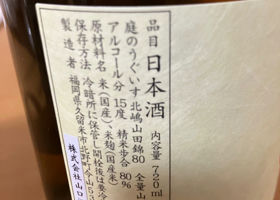 品目 日本酒 内容量 720ml
庭のうぐいす 北嶋山田錦80 全量山
アルコール分 15度 精米歩合 80%
原材料名 米(国産)、米麹(国産米)
保存方法 冷暗所に保管し開栓後は要冷
製造者 福岡県久留米市北野町今山
株式会社山口